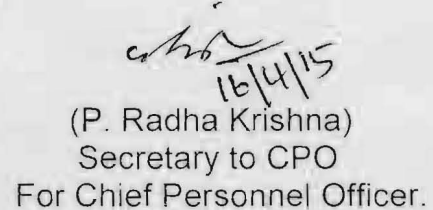 16/4/15
(P. Radha Krishna)
Secretary to CPO
For Chief Personnel Officer.